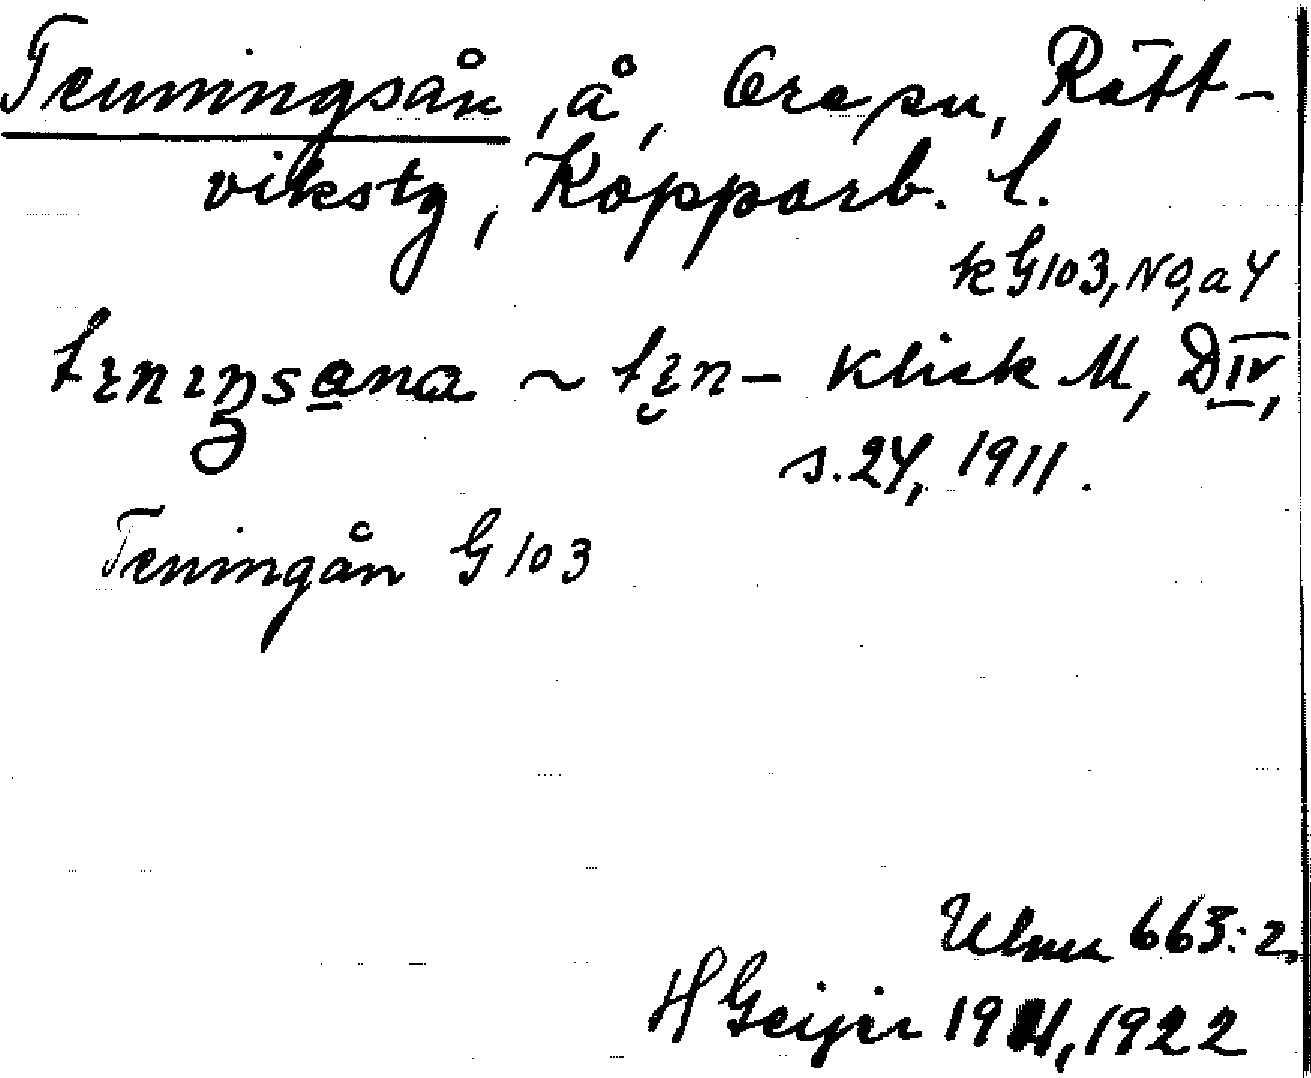 Tenningsån, å, Ore sn, Rätt-
vikstg, Kopparb. l.
k G103, NO, a 4
tɪnɪŋsana ~ tɪn- Klick M, DIV,
s. 24, 1911.
Teningån G 103
Ulma 663:2,
H Geijer 1911, 1922